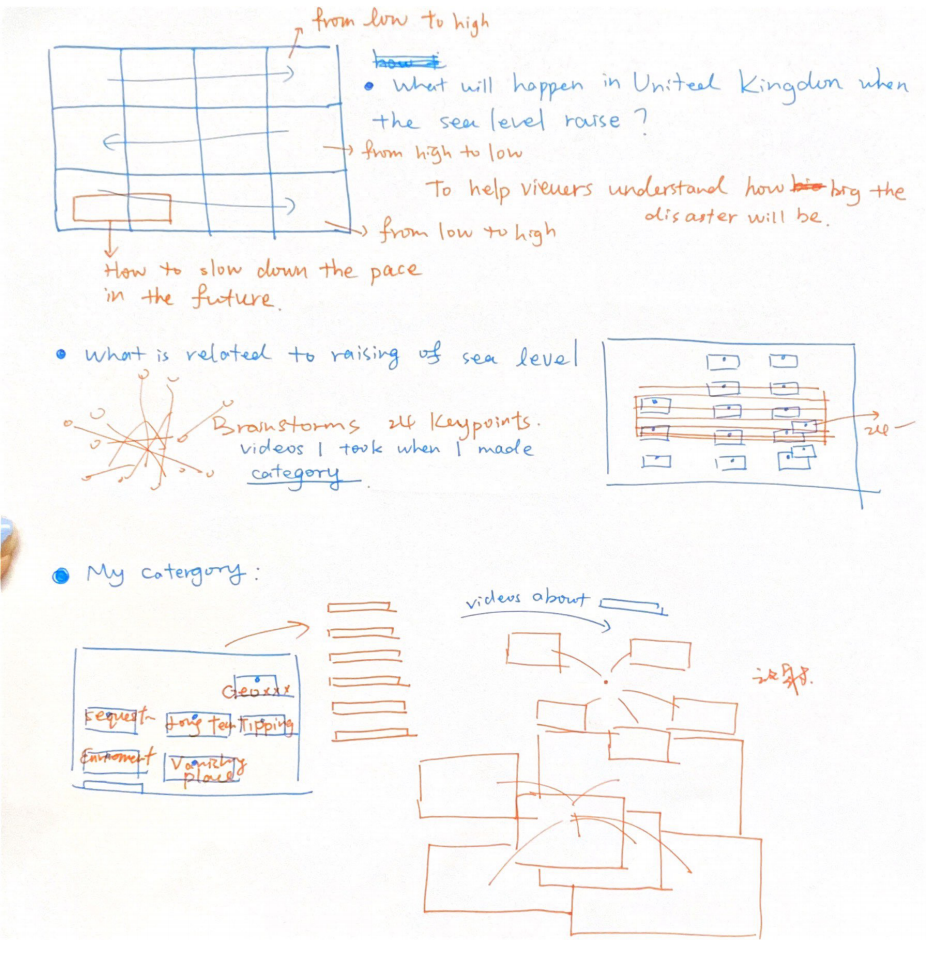 from low to high
• What will happen in United Kingdom when
the sea level raise ?
from high to low
To help viewers understand how big the
disaster will be.
from low to high
How to slow down the pace
in the future.
• What is related to raising of sea level
Brainstorms 24 Keypoints.
videos I took when I made
category.
24
• My catergory :
videos about
Geoxxx
Long
Tipping
Vanishing
place